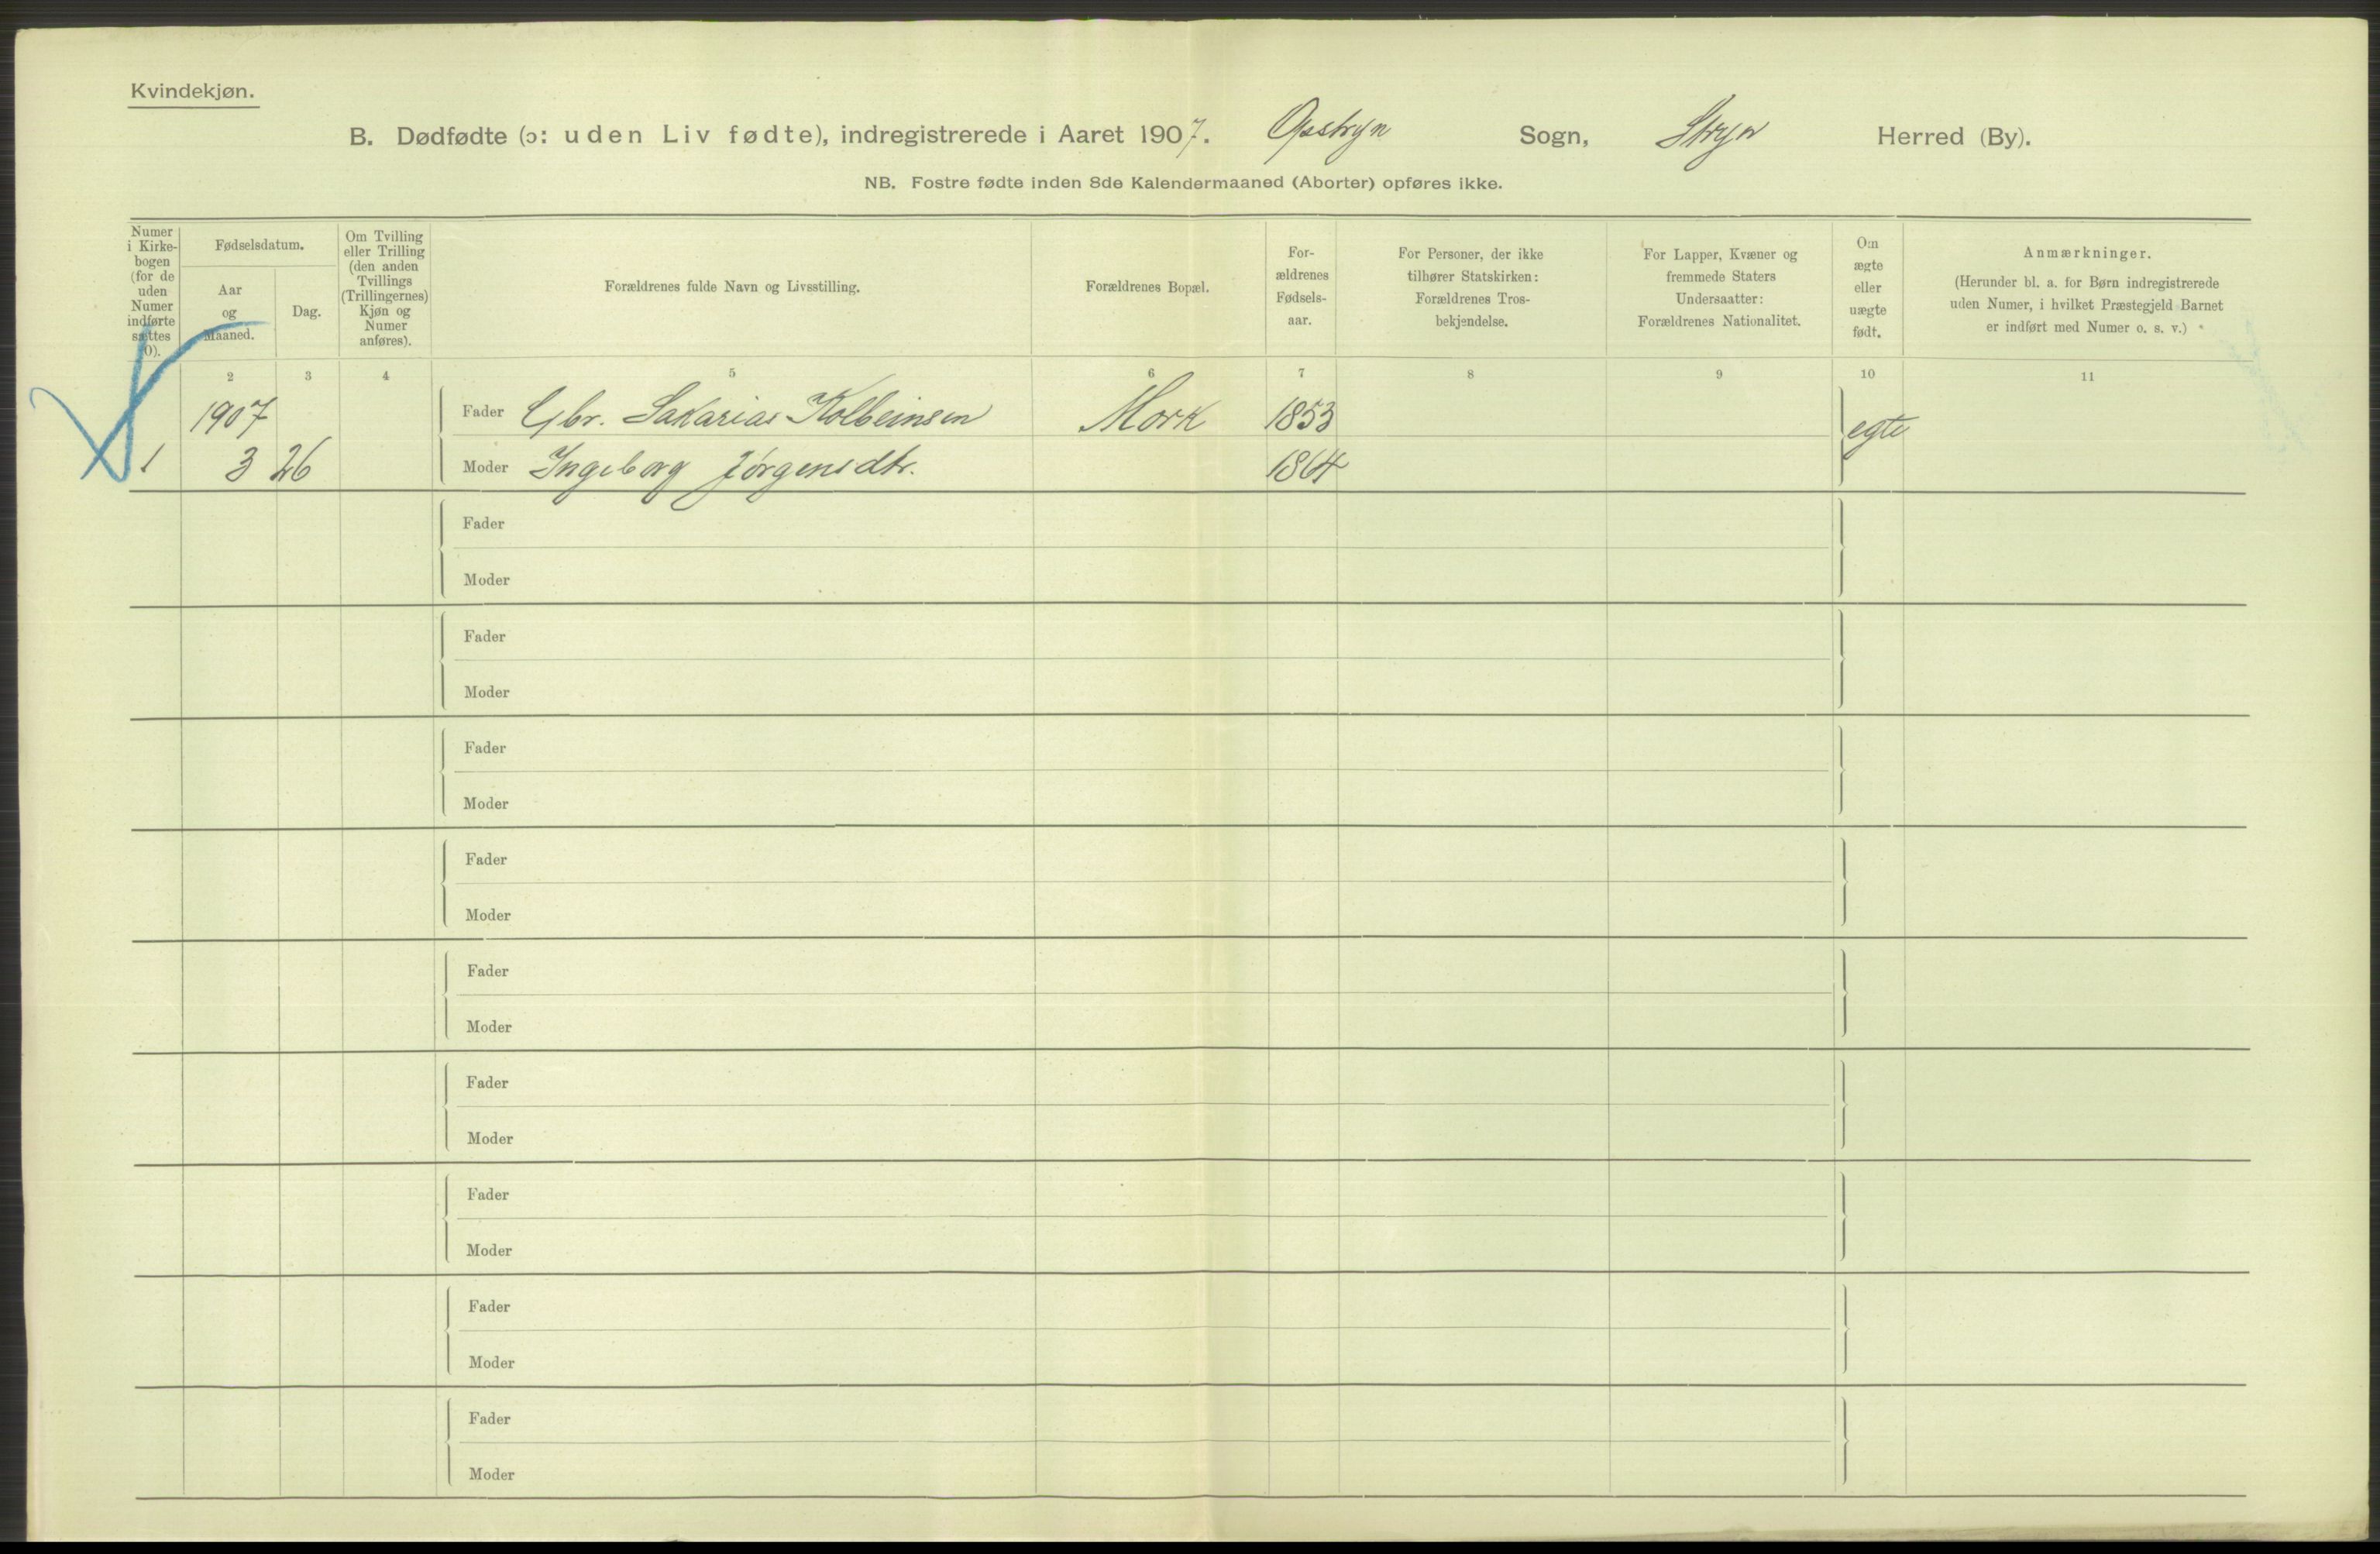 Kvindekjøn.
B. Dødfødte (ɔ: uden Liv fødte), indregistrerede i Aaret 1907. Opstryn Sogn, Stryn Herred (By).
NB. Fostre fødte inden 8de Kalendermaaned (Aborter) opføres ikke.
Numer
i Kirke-
bogen
(for de
uden
Numer
indførte
sættes
0).
Fødselsdatum.
Aar
og
Maaned.
Dag.
Om Tvilling
eller Trilling
(den anden
Tvillings
(Trillingernes)
Kjøn og
Numer
anføres).
Forældrenes fulde Navn og Livsstilling.
Forældrenes Bopæl.
For-
ældrenes
Fødsels-
aar.
For Personer, der ikke
tilhører Statskirken:
Forældrenes Tros-
bekjendelse.
For Lapper, Kvæner og
fremmede Staters
Undersaatter:
Forældrenes Nationalitet.
Om
ægte
eller
uægte
født.
Anmærkninger.
(Herunder bl. a. for Børn indregistrerede
uden Numer, i hvilket Præstegjeld Barnet
er indført med Numer o. s. v.)
2 3 4 5 6 7 8 9 10 11
1907 Fader Gbr. Sakarias Kolbeinsen Mork 1853 egte
1 3 26 Moder Ingeborg Jørgensdtr. 1864
Fader
Moder
Fader
Moder
Fader
Moder
Fader
Moder
Fader
Moder
Fader
Moder
Fader
Moder
Fader
Moder
Fader
Moder